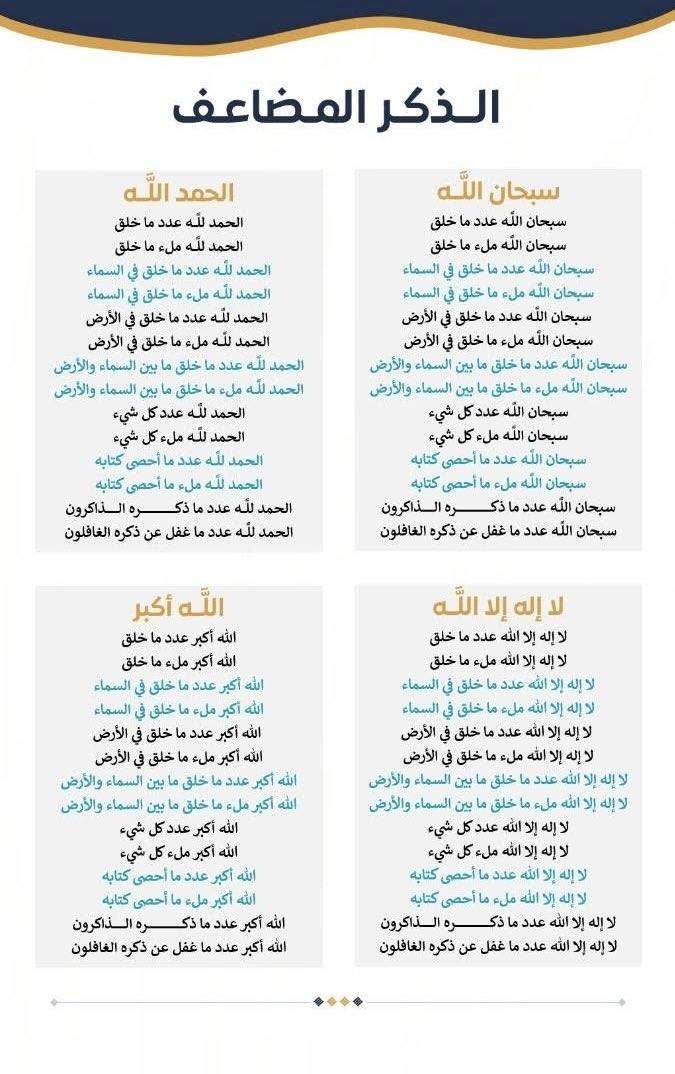 الـذكر المضاعف
سبحان اللَّـه
سبحان اللَّه عدد ما خلق
سبحان اللَّه ملء ما خلق
سبحان اللَّه عدد ما خلق في السماء
سبحان اللَّه ملء ما خلق في السماء
سبحان اللَّه عدد ما خلق في الأرض
سبحان اللَّه ملء ما خلق في الأرض
سبحان اللَّه عدد ما خلق ما بين السماء والأرض
سبحان اللَّه ملء ما خلق ما بين السماء والأرض
سبحان اللَّه عدد كل شيء
سبحان اللَّه ملء كل شيء
سبحان اللَّه عدد ما أحصى كتابه
سبحان اللَّه ملء ما أحصى كتابه
سبحان اللَّه عدد ما ذكـــــره الـــذاكرون
سبحان اللَّه عدد ما غفل عن ذكره الغافلون
الحمد اللَّـه
الحمد للَّـه عدد ما خلق
الحمد للَّـه ملء ما خلق
الحمد للَّـه عدد ما خلق في السماء
الحمد للَّـه ملء ما خلق في السماء
الحمد للَّـه عدد ما خلق في الأرض
الحمد للَّـه ملء ما خلق في الأرض
الحمد للَّـه عدد ما خلق ما بين السماء والأرض
الحمد للَّـه ملء ما خلق ما بين السماء والأرض
الحمد للَّـه عدد كل شيء
الحمد للَّـه ملء كل شيء
الحمد للَّـه عدد ما أحصى كتابه
الحمد للَّـه ملء ما أحصى كتابه
الحمد للَّـه عدد ما ذكـــــره الـــذاكرون
الحمد للَّـه عدد ما غفل عن ذكره الغافلون
لا إله إلا اللَّـه
لا إله إلا الله عدد ما خلق
لا إله إلا الله ملء ما خلق
لا إله إلا الله عدد ما خلق في السماء
لا إله إلا الله ملء ما خلق في السماء
لا إله إلا الله عدد ما خلق في الأرض
لا إله إلا الله ملء ما خلق في الأرض
لا إله إلا الله عدد ما خلق ما بين السماء والأرض
لا إله إلا الله ملء ما خلق ما بين السماء والأرض
لا إله إلا الله عدد كل شيء
لا إله إلا الله ملء كل شيء
لا إله إلا الله عدد ما أحصى كتابه
لا إله إلا الله ملء ما أحصى كتابه
لا إله إلا الله عدد ما ذكـــــره الـــذاكرون
لا إله إلا الله عدد ما غفل عن ذكره الغافلون
اللَّـه أكبر
الله أكبر عدد ما خلق
الله أكبر ملء ما خلق
الله أكبر عدد ما خلق في السماء
الله أكبر ملء ما خلق في السماء
الله أكبر عدد ما خلق في الأرض
الله أكبر ملء ما خلق في الأرض
الله أكبر عدد ما خلق ما بين السماء والأرض
الله أكبر ملء ما خلق ما بين السماء والأرض
الله أكبر عدد كل شيء
الله أكبر ملء كل شيء
الله أكبر عدد ما أحصى كتابه
الله أكبر ملء ما أحصى كتابه
الله أكبر عدد ما ذكـــــره الـــذاكرون
الله أكبر عدد ما غفل عن ذكره الغافلون